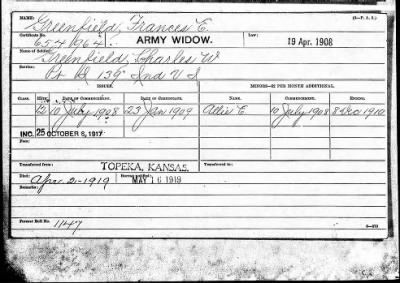 NAME: Greenfield, Frances E. (3-P. A. I.)
Certificate No. 654964 ARMY WIDOW. Law: 19 Apr. 1908
Name of Soldier: Greenfield, Charles W
Service: Pt D 139" Ind V I
ISSUE. MINORS—$2 PER MONTH ADDITIONAL.
CLASS. RATE. DATE OF COMMENCEMENT. DATE OF CERTIFICATE. NAME. COMMENCING. ENDING.
12 10 July 1908 23 Jan 1909 Allie E. 10 July 1908 8 Dec 1910
INC. 25 OCTOBER 6, 1917
Transferred from TOPEKA, KANSAS. Transferred to:
Died: Apr 21-1919 MAY 16 1919
Remarks:
Former Roll No. 1147